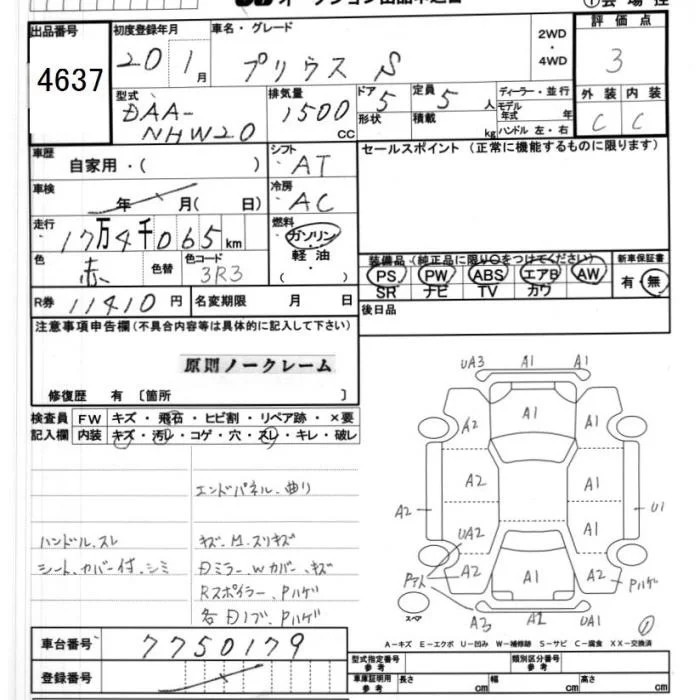 出品番号
4637
初度登録年月
20 1月
車名・グレード
プリウス S
2WD
・
4WD
評価点
3
型式
DAA-
NHW20
排気量
1500
CC
ドア 5
形状
定員 5 人
積載 kg
ディーラー・並行
モデル
年式 年
ハンドル 左・右
外装 内装
C C
車歴
自家用・( )
シフト
AT
セールスポイント(正常に機能するものに限ります)
車検
年 月( 日)
冷房
AC
走行
17万4千065km
燃料
ガソリン
・
軽油
( )
色
赤
色替
色コード
3R3
装備品(純正品に限り○をつけてください)
PS PW ABS エアB AW
SR ナビ TV カワ
新車保証書
有・無
R券 11410 円
名変期限 月 日
後日品
注意事項申告欄(不具合内容等は具体的に記入して下さい)
原則ノークレーム
修復歴 有 〔箇所 〕
検査員
記入欄
FW キズ・飛石・ヒビ割・リペア跡・×要
内装 キズ・汚レ・コゲ・穴・スレ・キレ・破レ
エンドパネル、曲り
ハンドル、スレ
キズ、M、スリキズ
シート、カバー付、シミ
Dミラー、Wカバー、キズ
Rスポイラー、Pハゲ
各Dノブ、Pハゲ
UA3 A1 A1
A1
A2 A1
A2 A1
A2 U1
UA2 A1
Pアト A2 A1 A2 Pハゲ
スペア
A3 A2 UA1
①
A-キズ E-エクボ U-凹み W-補修跡 S-サビ C-腐食 XX-交換済
車台番号
7750179
登録番号
型式指定番号
参考
類別区分番号
参考
車庫証明用
参考
長さ cm
幅 cm
高さ cm